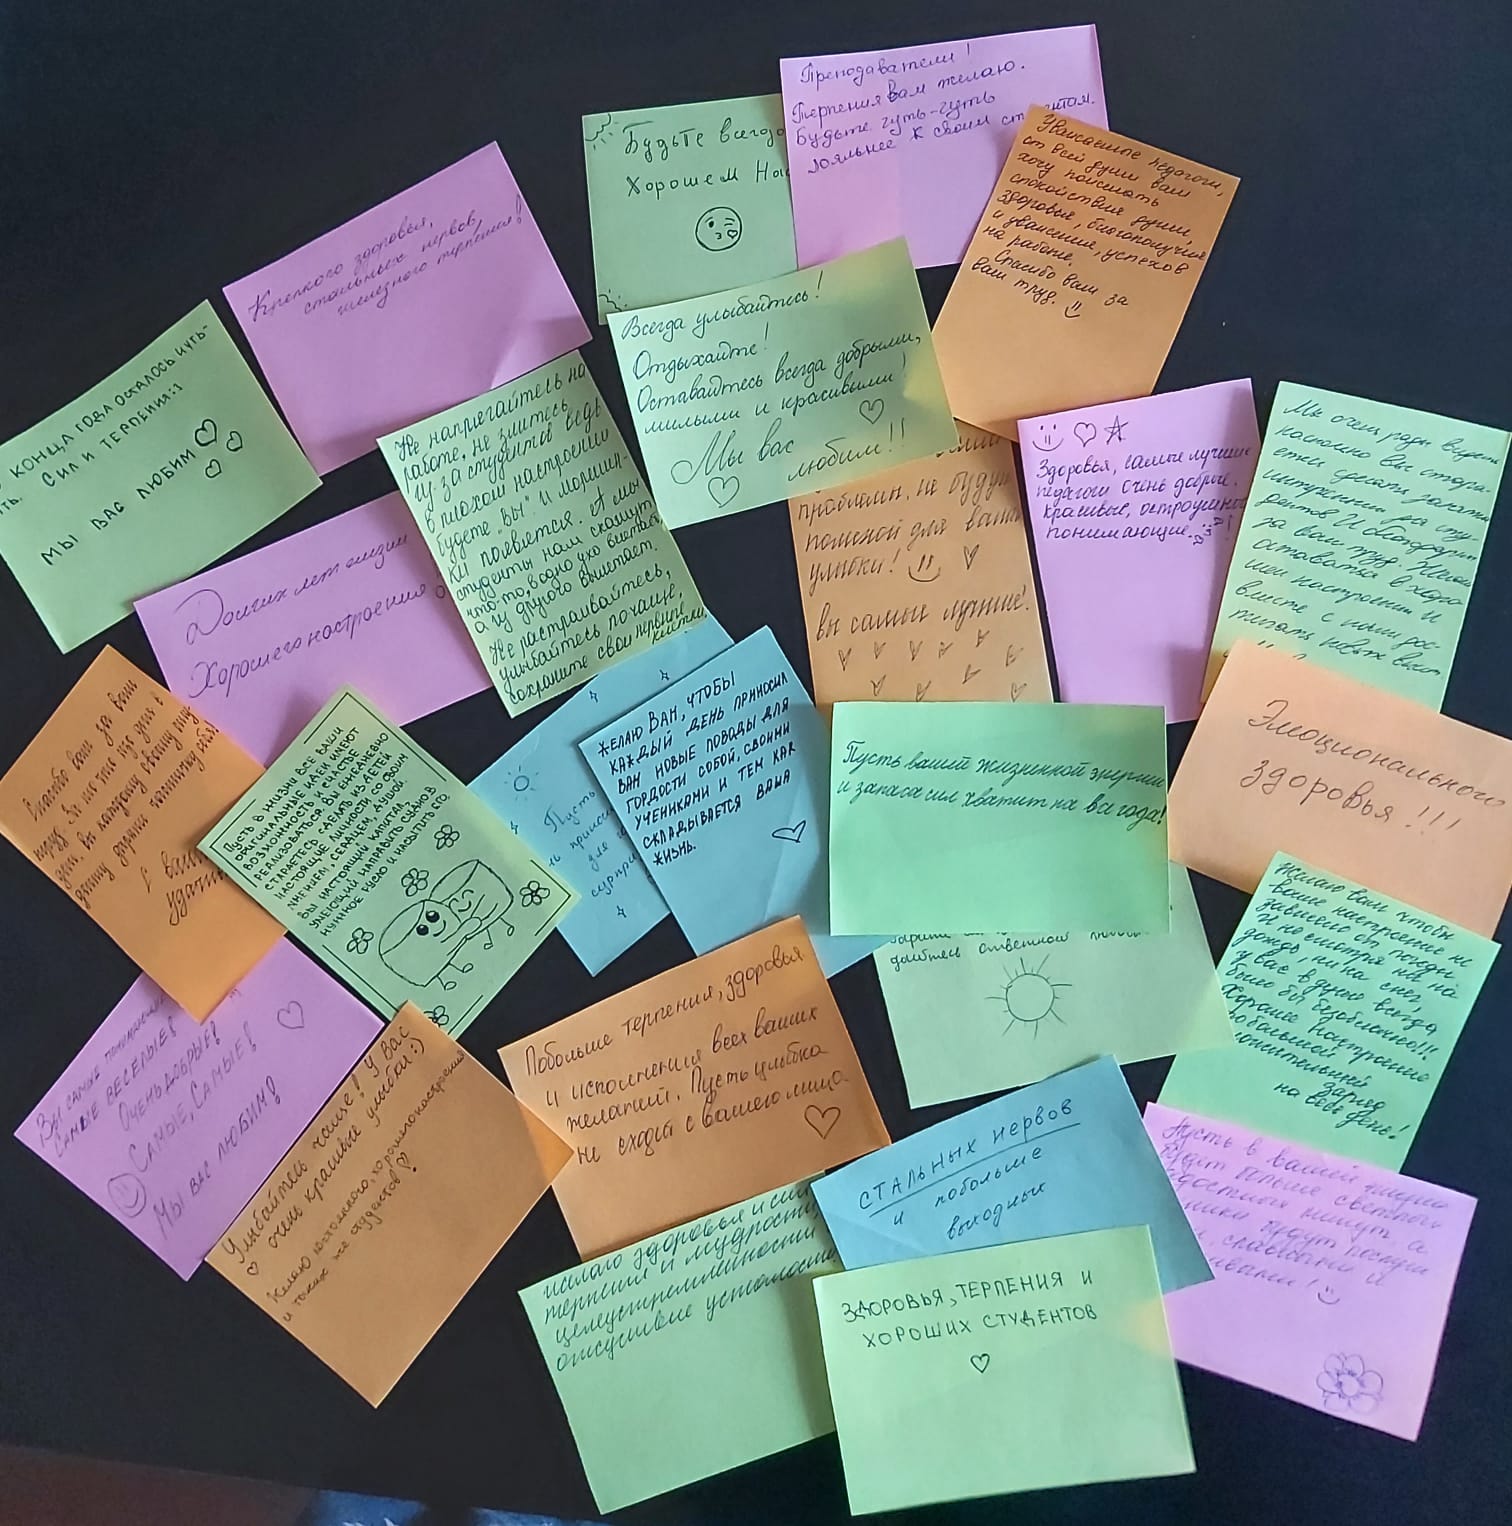 Преподаватели!
Терпения вам желаю.
Будьте чуть-чуть
лояльнее к своим
Будьте всегда
Хорошем
Уважаемые педагоги,
от всей души вам
хочу пожелать
спокойствия души
здоровья, благополучия
и уважения, успехов
на работе.
Спасибо вам за
ваш труд.
Крепкого здоровья,
стальных нервов,
железного терпения!
Всегда улыбайтесь!
Отдыхайте!
Оставайтесь всегда добрыми,
милыми и красивыми!
Мы вас
любим!!
конца года осталось чуть-
ть. Сил и терпения:з
МЫ ВАС ЛЮБИМ
Не напрягайтесь на
работе, не злитесь
из-за студентов ведь
в плохом настроении
будете "вы" и морщин-
ки появятся. А мы
студенты нам скажут
что-то, в одно ухо влетает,
а из другого вылетает.
Не расстраивайтесь,
улыбайтесь почаще,
сохраните свои нервные
клетки.
Здоровья, самые лучшие
педагоги очень добрые,
красивые, остроумные
понимающие.
Мы очень рады видеть
насколько вы стара-
етесь сделать занятия
за ваш труд. Желаем
оставаться в хоро
шем настроении и
вместе с нами дос-
тигать новых высот
проблемы, не будут
помехой для вашей
улыбки!
вы самые лучшие!
Долгих лет жизни
Хорошего настроения
Спасибо вам за ваш
труд. За то что изо дня в
день вы каждому своему сту-
денту дарите частичку себя!
С вами
удачи
ПУСТЬ В ЖИЗНИ ВСЕ ВАШИ
ОРИГИНАЛЬНЫЕ ИДЕИ ИМЕЮТ
ВОЗМОЖНОСТЬ И СЧАСТЬЕ
РЕАЛИЗОВАТЬСЯ. ВЫ ЕЖЕДНЕВНО
СТАРАЕТЕСЬ СДЕЛАТЬ ИЗ ДЕТЕЙ
НАСТОЯЩИЕ ЛИЧНОСТИ СО СВОИМ
МНЕНИЕМ, СЕРДЦЕМ, ДУШОЙ.
ВЫ НАСТОЯЩИЙ КАПИТАН,
УМЕЮЩИЙ НАПРАВИТЬ СУДНО В
НУЖНОЕ РУСЛО И НАСЫТИТЬ ЕГО.
Пусть
приноси
для
сюрпри
ЖЕЛАЮ ВАМ, ЧТОБЫ
КАЖДЫЙ ДЕНЬ ПРИНОСИЛ
ВАМ НОВЫЕ ПОВОДЫ ДЛЯ
ГОРДОСТИ СОБОЙ, СВОИМИ
УЧЕНИКАМИ И ТЕМ КАК
СКЛАДЫВАЕТСЯ ВАША
ЖИЗНЬ.
Пусть вашей жизненной энергии
и запаса сил хватит на все года!
Эмоционального
здоровья!!!
ответной
Желаю вам чтобы
ваше настроение не
зависело от погоды
И не смотря ни на
дождь, ни на снег,
у вас в душе всегда
было бы безоблачно!!!
Хорошее настроение
положительный
заряд
на весь день!
Вы самые понимающие
САМЫЕ ВЕСЕЛЫЕ!
ОЧЕНЬ ДОБРЫЕ!
САМЫЕ, САМЫЕ!
МЫ ВАС ЛЮБИМ!
Улыбайтесь чаще! У вас
очень красивые улыбки:)
Желаю постоянного, хорошего настроения
и таких же студентов!
Побольше терпения, здоровья
и исполнения всех ваших
желаний. Пусть улыбка
не сходит с вашего лица
СТАЛЬНЫХ НЕРВОВ
и побольше
выходных
желаю здоровья и сил
терпения и мудрости
целеустремленности
отсутствие усталости
ЗДОРОВЬЯ, ТЕРПЕНИЯ И
ХОРОШИХ СТУДЕНТОВ
Пусть в вашей жизни
будет больше светлых
радостных минут а
ники будут послуш
и, славными и
ивыми!